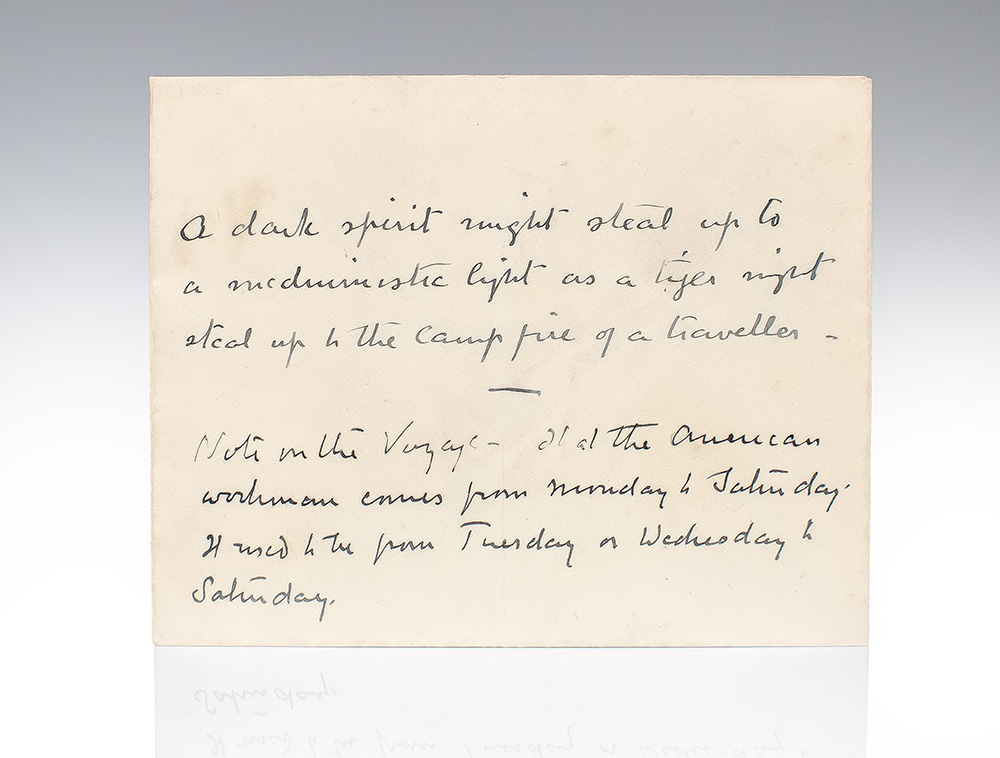 A dark spirit might steal up to
a mediumistic light as a tiger might
steal up to the camp fire of a traveller -
Note on the Voyage - that the American
workman comes from Monday to Saturday.
It used to be from Tuesday or Wednesday to
Saturday.